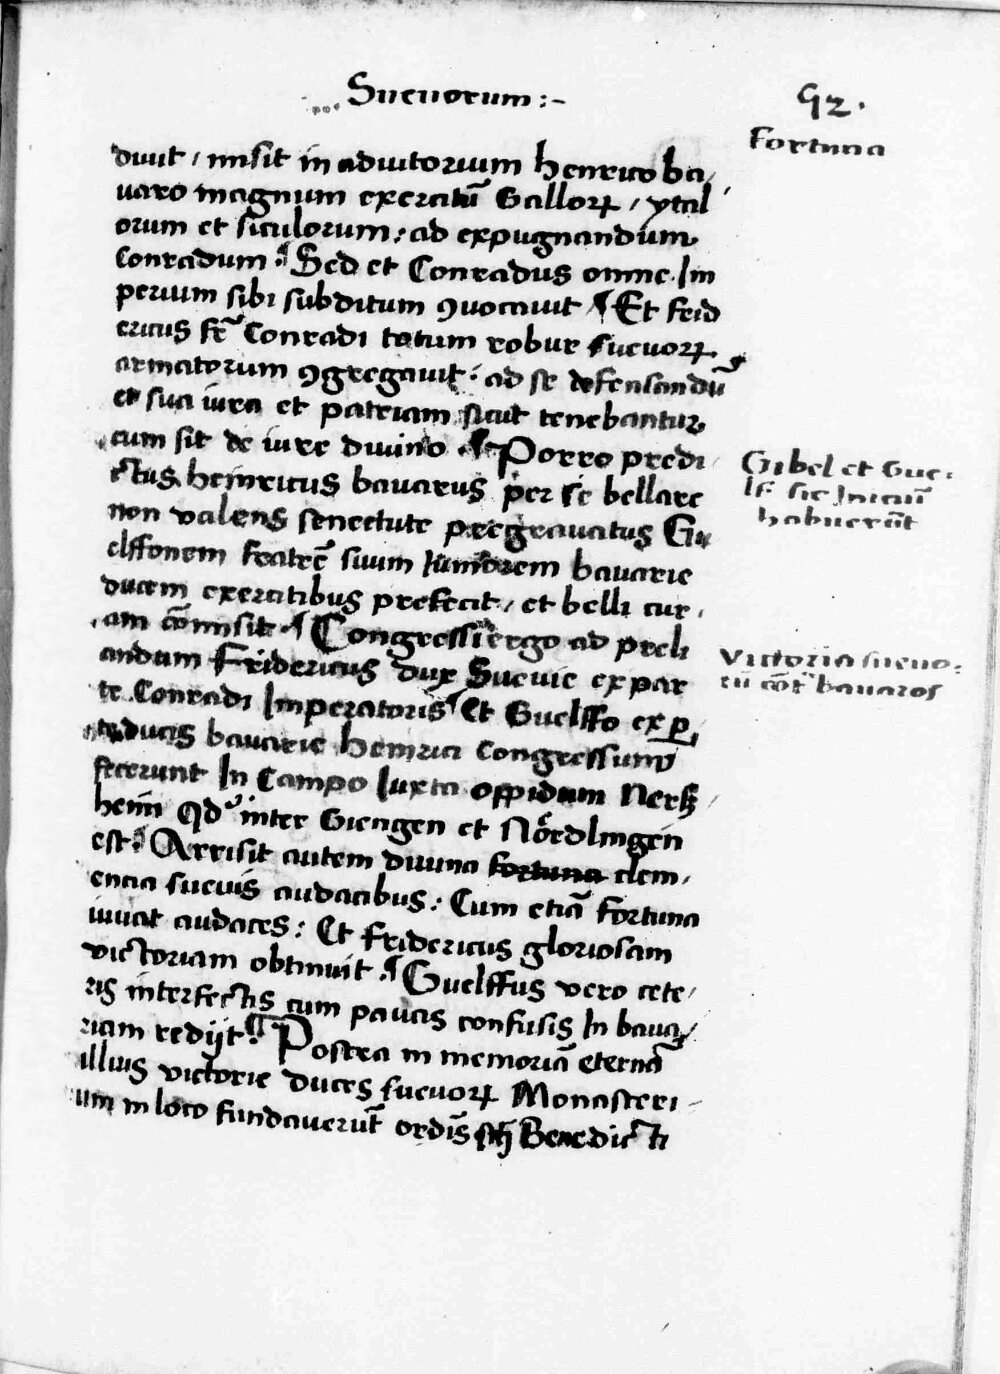 Suevorum :-
92.
Fortuna
duxit / misit in adiutorium henrico ba/
varo magnum exercitū Gallorꝝ / ytal
orum et siculorum : ad expugnandum
Conradum . Sed et Conradus omne Im
perium sibi subditum ꝯvocavit ¶ Et frid
ericus fr̄ Conradi totum robur suevorꝝ
armatorum ꝯgregavit : ad se defensandū
et sua iura et patriam sicut tenebantur
cum sit de iure divino . ¶ Porro predi
ctus heinricus bavarus per se bellare
non valens senectute pregravatus Gu
elffonem fratrē suum Iuniorem bavarie
ducem exercitibus prefecit / et belli cur
am cōmisit . ¶ Congressi ergo ad preli
andum Fridericus dux Suevie ex par
te Conradi Imperatoris ¶ Et Guelffo ex p̱
te ducis bavarie heinrici Congressum
fecerunt In Campo Iuxta oppidum Nerß
heim Qd inter Giengen et Nördlingen
est . Arrisit autem divina fortuna clem
encia suevis audacibus : Cum etiā Fortuna
iuvat audaces : Et fridericus gloriosam
victoriam obtinuit . ¶ Guelffus vero cete/
ris interfectis cum paucis confusis In bava/
riam redijt ¶ Postea in memoriā eternā
illius victorie duces suevorꝝ Monasteri
um in loco fundaverūt ordīs scī Benedicti
Gibel et Gue
lf sic Inicium
habuerūt
Victoria suevo
rū cōt bavaros